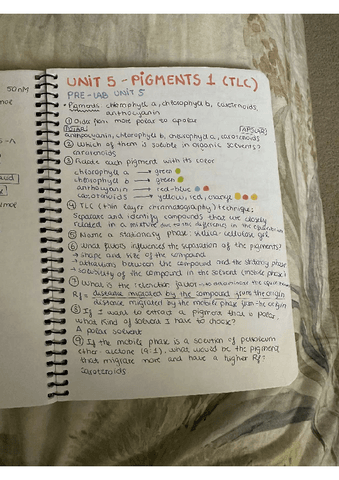 50 nM
UNIT 5 - PIGMENTS 1 (TLC)
PRE-LAB UNIT 5
• Pigments: chlorophyll a, chlorophyll b, carotenoids,
anthocyanin
① Order from more polar to apolar
POLAR APOLAR
anthocyanin, chlorophyll b, chlorophyll a, carotenoids
② Which of them is soluble in organic solvents?
carotenoids
③ Relate each pigment with its color
chlorophyll a → green
chlorophyll b → green
anthocyanin → red-blue
carotenoids → yellow, red, orange
④ TLC (thin layer chromatography) technique:
Separate and identify compounds that are closely
related in a mixture due to the difference in the
⑤ Name a stationary phase: silica, cellulose, gel
⑥ What factors influences the separation of the pigments?
→ shape and size of the compound
→ attractions between the compound and the stationary phase
→ solubility of the compound in the solvent (mobile phase)
⑦ What is the retention factor → to determine the
Rf = distance migrated by the compound from the origin
distance migrated by the mobile phase from the origin
⑧ If I want to extract a pigment that is polar,
what kind of solvent I have to choose?
A polar solvent
⑨ If the mobile phase is a solution of petroleum
ether: acetone (9:1), what would be the pigment
that migrate more and have a higher Rf?
carotenoids